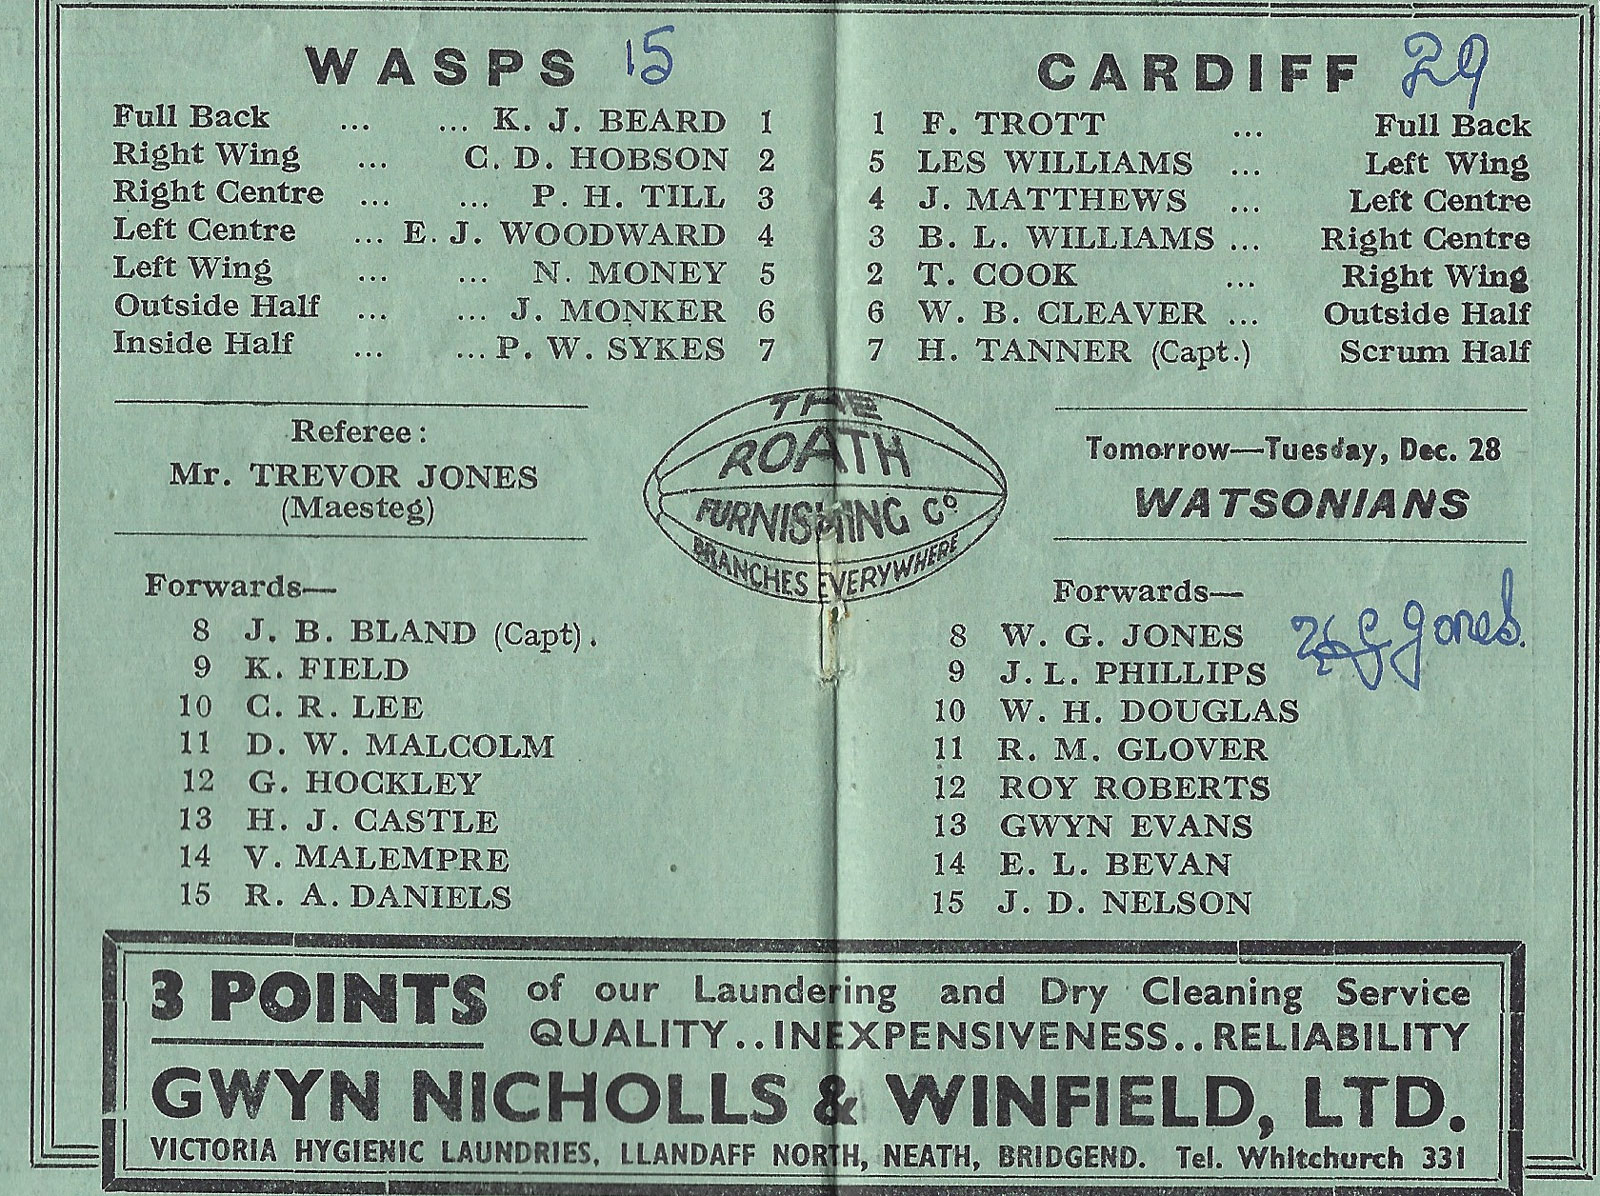 WASPS 15
Full Back ... ... K. J. BEARD 1
Right Wing ... C. D. HOBSON 2
Right Centre ... ... P. H. TILL 3
Left Centre ... E. J. WOODWARD 4
Left Wing ... ... N. MONEY 5
Outside Half ... ... J. MONKER 6
Inside Half ... ... P. W. SYKES 7
CARDIFF 29
1 F. TROTT ... Full Back
5 LES WILLIAMS ... Left Wing
4 J. MATTHEWS ... Left Centre
3 B. L. WILLIAMS ... Right Centre
2 T. COOK ... Right Wing
6 W. B. CLEAVER ... Outside Half
7 H. TANNER (Capt.) Scrum Half
Referee:
Mr. TREVOR JONES
(Maesteg)
THE
ROATH
FURNISHING Co
BRANCHES EVERYWHERE
Tomorrow—Tuesday, Dec. 28
WATSONIANS
Forwards—
8 J. B. BLAND (Capt).
9 K. FIELD
10 C. R. LEE
11 D. W. MALCOLM
12 G. HOCKLEY
13 H. J. CASTLE
14 V. MALEMPRE
15 R. A. DANIELS
Forwards—
8 W. G. JONES
G Jones.
9 J. L. PHILLIPS
10 W. H. DOUGLAS
11 R. M. GLOVER
12 ROY ROBERTS
13 GWYN EVANS
14 E. L. BEVAN
15 J. D. NELSON
3 POINTS of our Laundering and Dry Cleaning Service
QUALITY..INEXPENSIVENESS..RELIABILITY
GWYN NICHOLLS & WINFIELD, LTD.
VICTORIA HYGIENIC LAUNDRIES, LLANDAFF NORTH, NEATH, BRIDGEND. Tel. Whitchurch 331